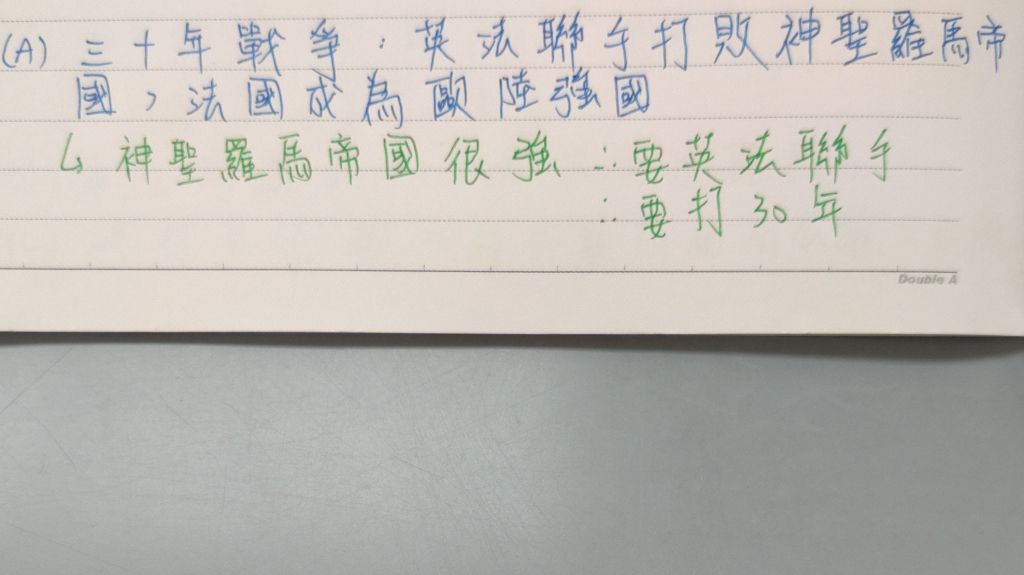 (A) 三十年戰爭:英法聯手打敗神聖羅馬帝
國,法國成為歐陸強國
↳ 神聖羅馬帝國很強 ∴要英法聯手
∴要打30年
Double A